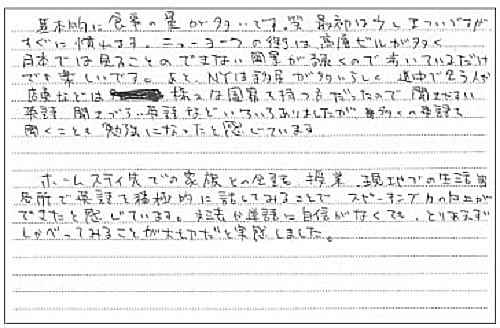 基本的に食事の量が多いです。笑 最初は少しきついですが
すぐに慣れます。ニューヨークの街は高層ビルが多く
日本では見ることのできない風景が続くので歩いているだけ
でも楽しいです。あと、NYは訪問が多いらしく 道中で会う人や
店員などは 様々な国籍を持つ方だったので 聞きやすい
英語 聞きづらい英語などいろいろありましたが 数多くの英語を
聞くことも勉強になったと感じています
ホームステイ先での家族との会話、授業、現地での生活
各所で英語で積極的に話してみることで スピーキング力の向上が
できたと感じています。文法や単語に自信がなくても、とりあえず
しゃべってみることが大切だと実感しました。